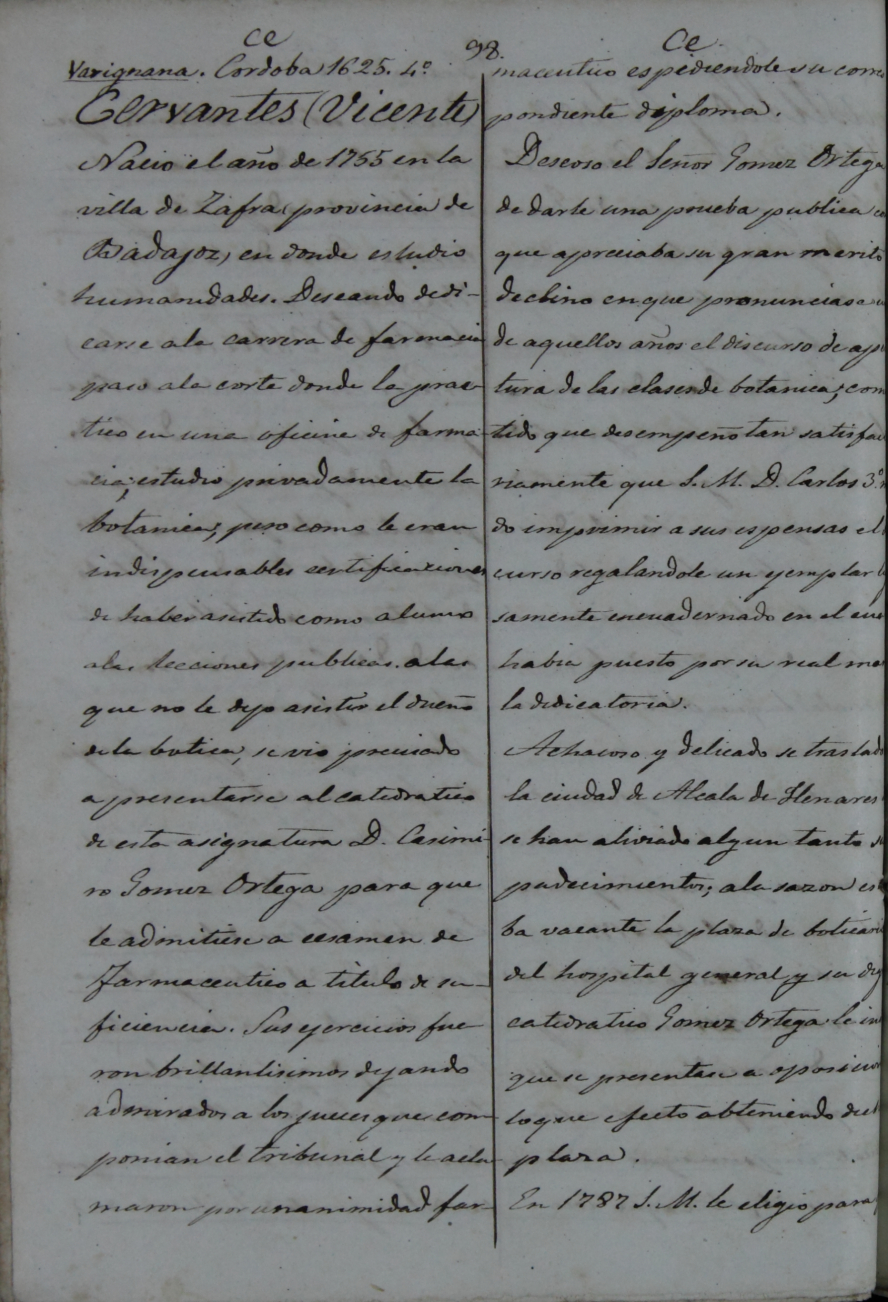 Ce
98.
Ce.
Varignana. Cordoba 1625. 4º
Cervantes (Vicente)
Nacio el año de 1755 en la
villa de Zafra (provincia de
Badajoz) en donde estudio
humanidades. Deseando dedi-
carse a la carrera de farmacia
paso a la corte donde la prac-
tico en una oficina de farma-
cia; estudio privadamente la
botanica; pero como le eran
indispensables certificaciones
de haber asistido como alumno
a las lecciones publicas a las
que no le dejo asistir el dueño
de la botica, se vio precisado
a presentarse al catedratico
de esta asignatura D. Casimi-
ro Gomez Ortega para que
le admitiese a ecsamen de
Farmaceutico a titulo de su-
ficiencia. Sus ejercicios fue-
ron brillantisimos dejando
admirados a los jueces que com-
ponian el tribunal y le acla-
maron por unanimidad far-
maceutico espidiendole su corres
pondiente diploma.
Deseoso el Señor Gomez Ortega
de darle una prueba publica
que apreciaba su gran merito
declino en que pronunciase
de aquellos años el discurso de aper
tura de las clases de botanica; come
tido que desempeño tan satisfac
riamente que S. M. D. Carlos 3º
do imprimir a sus espensas el
curso regalandole un ejemplar
samente encuadernado en el cua
habia puesto por su real ma
la dedicatoria.
Achacoso y delicado se traslado
la ciudad de Alcala de Henares
se han aliviado algun tanto
padecimientos; a la sazon es
ba vacante la plaza de boticario
del hospital general y su dig
catedratico Gomez Ortega le in
que se presentase a oposicion
lo que efecto obteniendo dich
plaza.
En 1787 S. M. le eligio para